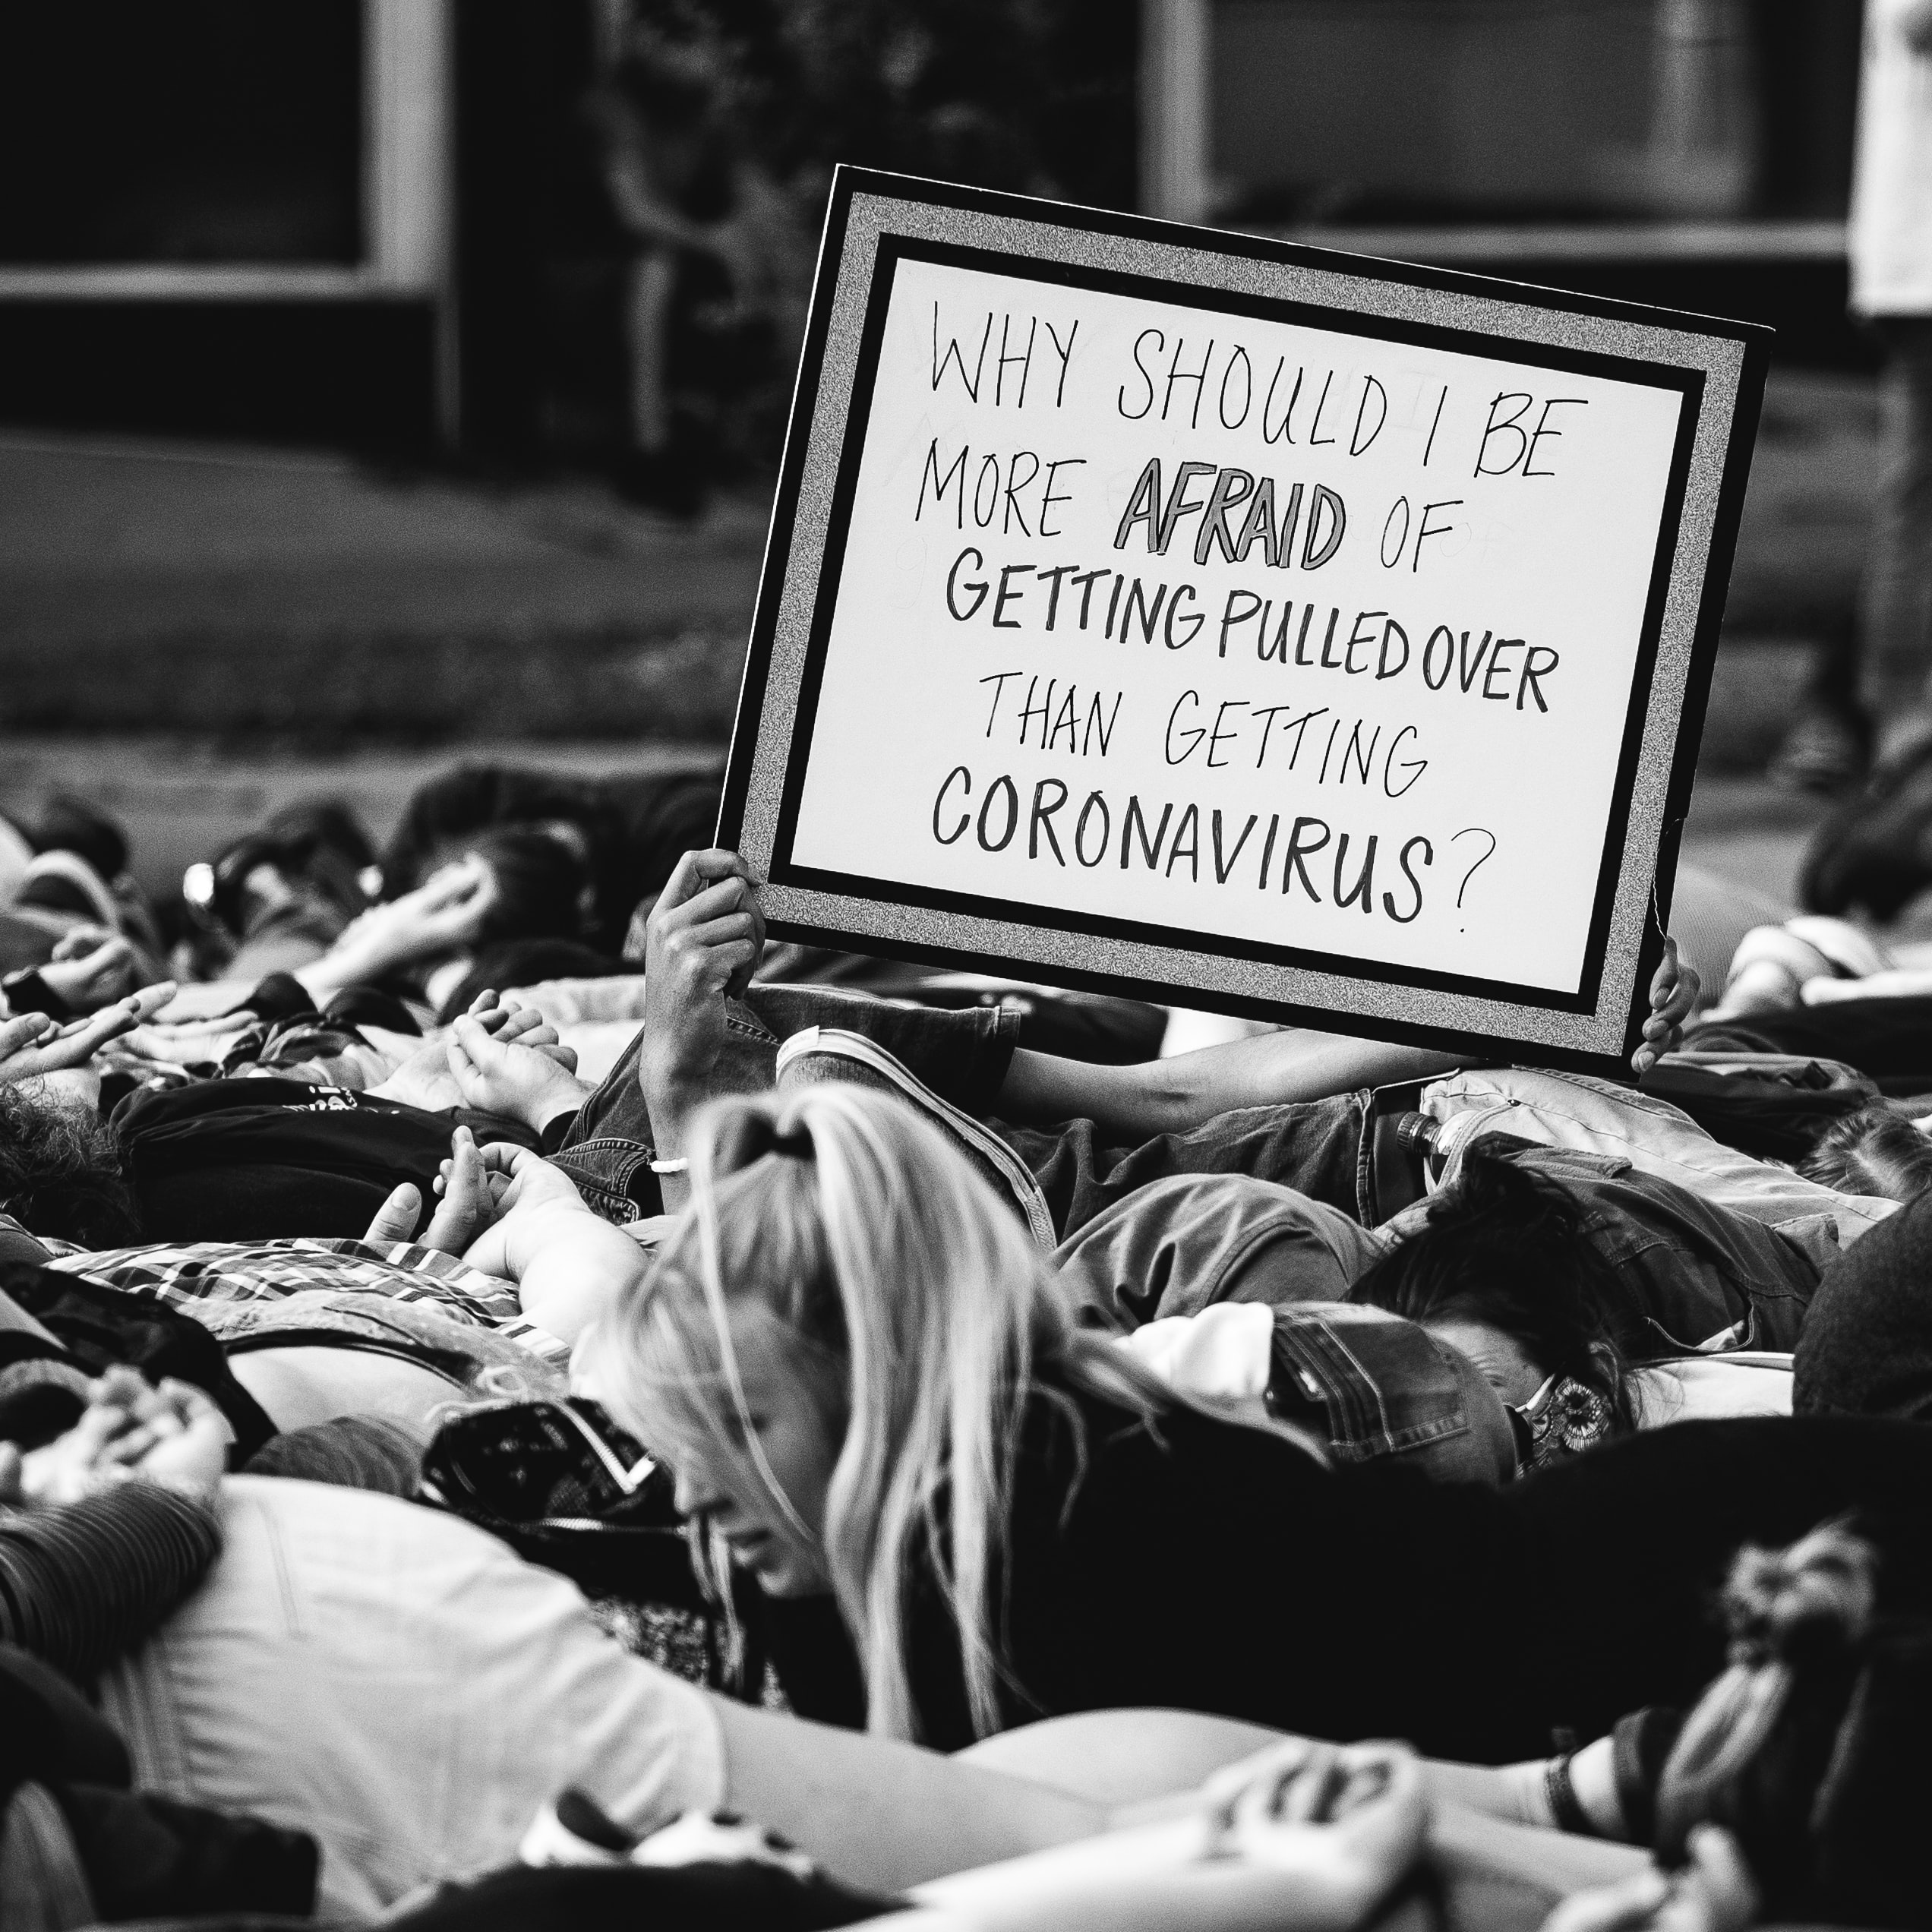 WHY SHOULD I BE
MORE AFRAID OF
GETTING PULLED OVER
THAN GETTING
CORONAVIRUS?